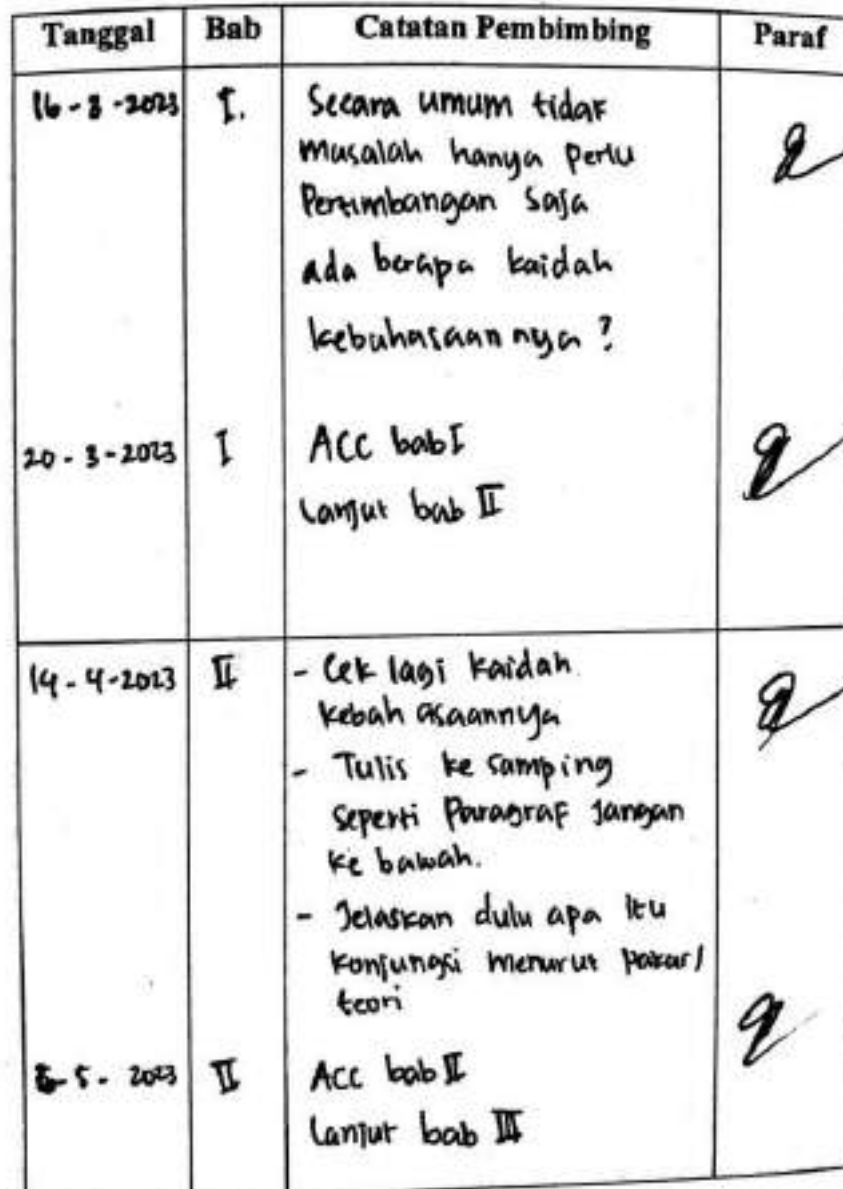 Tanggal Bab Catatan Pembimbing Paraf
16-3-2023 I. Secara umum tidak
masalah hanya perlu
Pertimbangan saja
ada berapa kaidah
kebahasaannya?
20-3-2023 I ACC bab I
Lanjut bab II
14-4-2023 II - Cek lagi kaidah
kebahasaannya
- Tulis ke samping
seperti Paragraf jangan
ke bawah.
- Jelaskan dulu apa itu
konjungsi menurut pakar/
teori
5-2023 II ACC bab II
Lanjut bab III